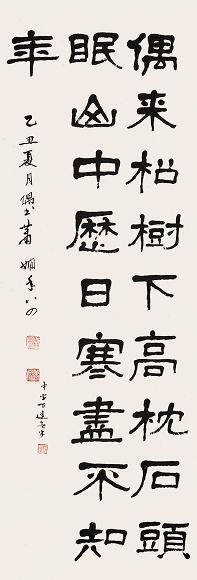 偶来松樹下高枕石頭
眠山中歷日寒盡不知
年
乙丑夏月偶书蕭嫻年八四